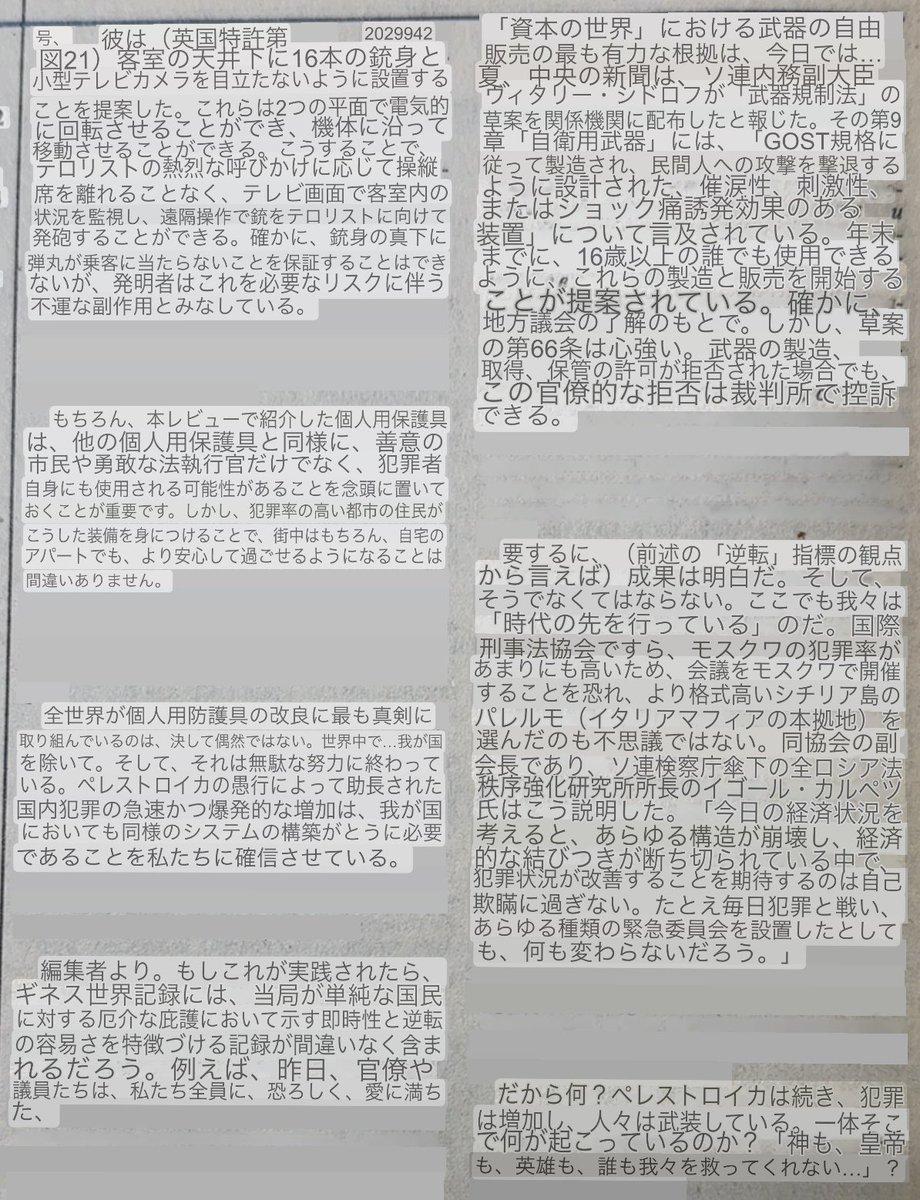 号、 彼は（英国特許第 2029942
図21）客室の天井下に16本の銃身と
小型テレビカメラを目立たないように設置する
ことを提案した。これらは2つの平面で電気的
に回転させることができ、機体に沿って
移動させることができる。こうすることで、
テロリストの熱烈な呼びかけに応じて操縦
席を離れることなく、テレビ画面で客室内の
状況を監視し、遠隔操作で銃をテロリストに向けて
発砲することができる。確かに、銃身の真下に
弾丸が乗客に当たらないことを保証することはでき
ないが、発明者はこれを必要なリスクに伴う
不運な副作用とみなしている。
もちろん、本レビューで紹介した個人用保護具
は、他の個人用保護具と同様に、善意の
市民や勇敢な法執行官だけでなく、犯罪者
自身にも使用される可能性があることを念頭に置いて
おくことが重要です。しかし、犯罪率の高い都市の住民が
こうした装備を身につけることで、街中はもちろん、自宅の
アパートでも、より安心して過ごせるようになることは
間違いありません。
全世界が個人用防護具の改良に最も真剣に
取り組んでいるのは、決して偶然ではない。世界中で…我が国
を除いて。そして、それは無駄な努力に終わって
いる。ペレストロイカの愚行によって助長された
国内犯罪の急速かつ爆発的な増加は、我が国
においても同様のシステムの構築がとうに必要
であることを私たちに確信させている。
編集者より。もしこれが実践されたら、
ギネス世界記録には、当局が単純な国民
に対する厄介な庇護において示す即時性と逆転
の容易さを特徴づける記録が間違いなく含ま
れるだろう。例えば、昨日、官僚や
議員たちは、私たち全員に、恐ろしく、愛に満ち
た、
「資本の世界」における武器の自由
販売の最も有力な根拠は、今日では…
夏、中央の新聞は、ソ連内務副大臣
ヴィタリー・シドロフが「武器規制法」の
草案を関係機関に配布したと報じた。その第9
章「自衛用武器」には、「GOST規格に
従って製造され、民間人への攻撃を撃退する
ように設計された、催涙性、刺激性、
またはショック痛誘発効果のある
装置」について言及されている。年末
までに、16歳以上の誰でも使用できる
ように、これらの製造と販売を開始する
ことが提案されている。確かに、
地方議会の了解のもとで。しかし、草案
の第66条は心強い。武器の製造、
取得、保管の許可が拒否された場合でも、
この官僚的な拒否は裁判所で控訴
できる。
要するに、（前述の「逆転」指標の観点
から言えば）成果は明白だ。そして、
そうでなくてはならない。ここでも我々は
「時代の先を行っている」のだ。国際
刑事法協会ですら、モスクワの犯罪率が
あまりにも高いため、会議をモスクワで開催
することを恐れ、より格式高いシチリア島の
パレルモ（イタリアマフィアの本拠地）を
選んだのも不思議ではない。同協会の副
会長であり、ソ連検察庁傘下の全ロシア法
秩序強化研究所所長のイゴール・カルペツ
氏はこう説明した。「今日の経済状況を
考えると、あらゆる構造が崩壊し、経済
的な結びつきが断ち切られている中で、
犯罪状況が改善することを期待するのは自己
欺瞞に過ぎない。たとえ毎日犯罪と戦い、
あらゆる種類の緊急委員会を設置したとして
も、何も変わらないだろう。」
だから何？ペレストロイカは続き、犯罪
は増加し、人々は武装している。一体そこ
で何が起こっているのか？「神も、皇帝
も、英雄も、誰も我々を救ってくれない…」？